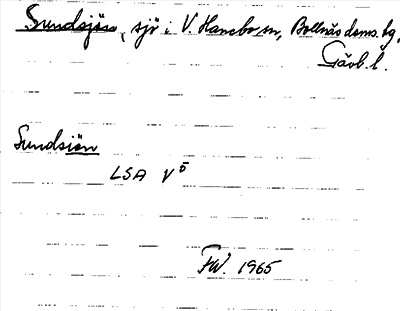 Sundsjön, sjö i V. Hanebo sn, Bollnäs doms. hg,
Gävl. l.
Sundsiön
LSA V⁵
FW. 1965